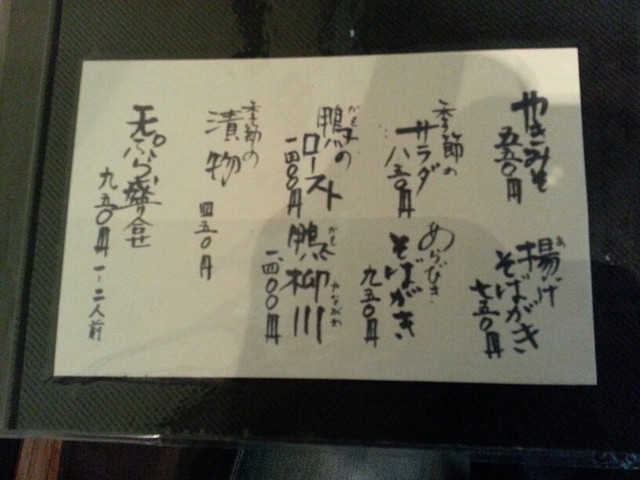 やきみそ
五五〇円
揚げ
あ
そばがき
七五〇円
季節の
サラダ
八五〇円
あらびき
そばがき
九五〇円
鴨の
かも
ロースト
一四〇〇円
鴨柳川
かも
やながわ
一、四〇〇円
季節の
漬物
四五〇円
天ぷら盛合せ
九五〇円
一〜二人前